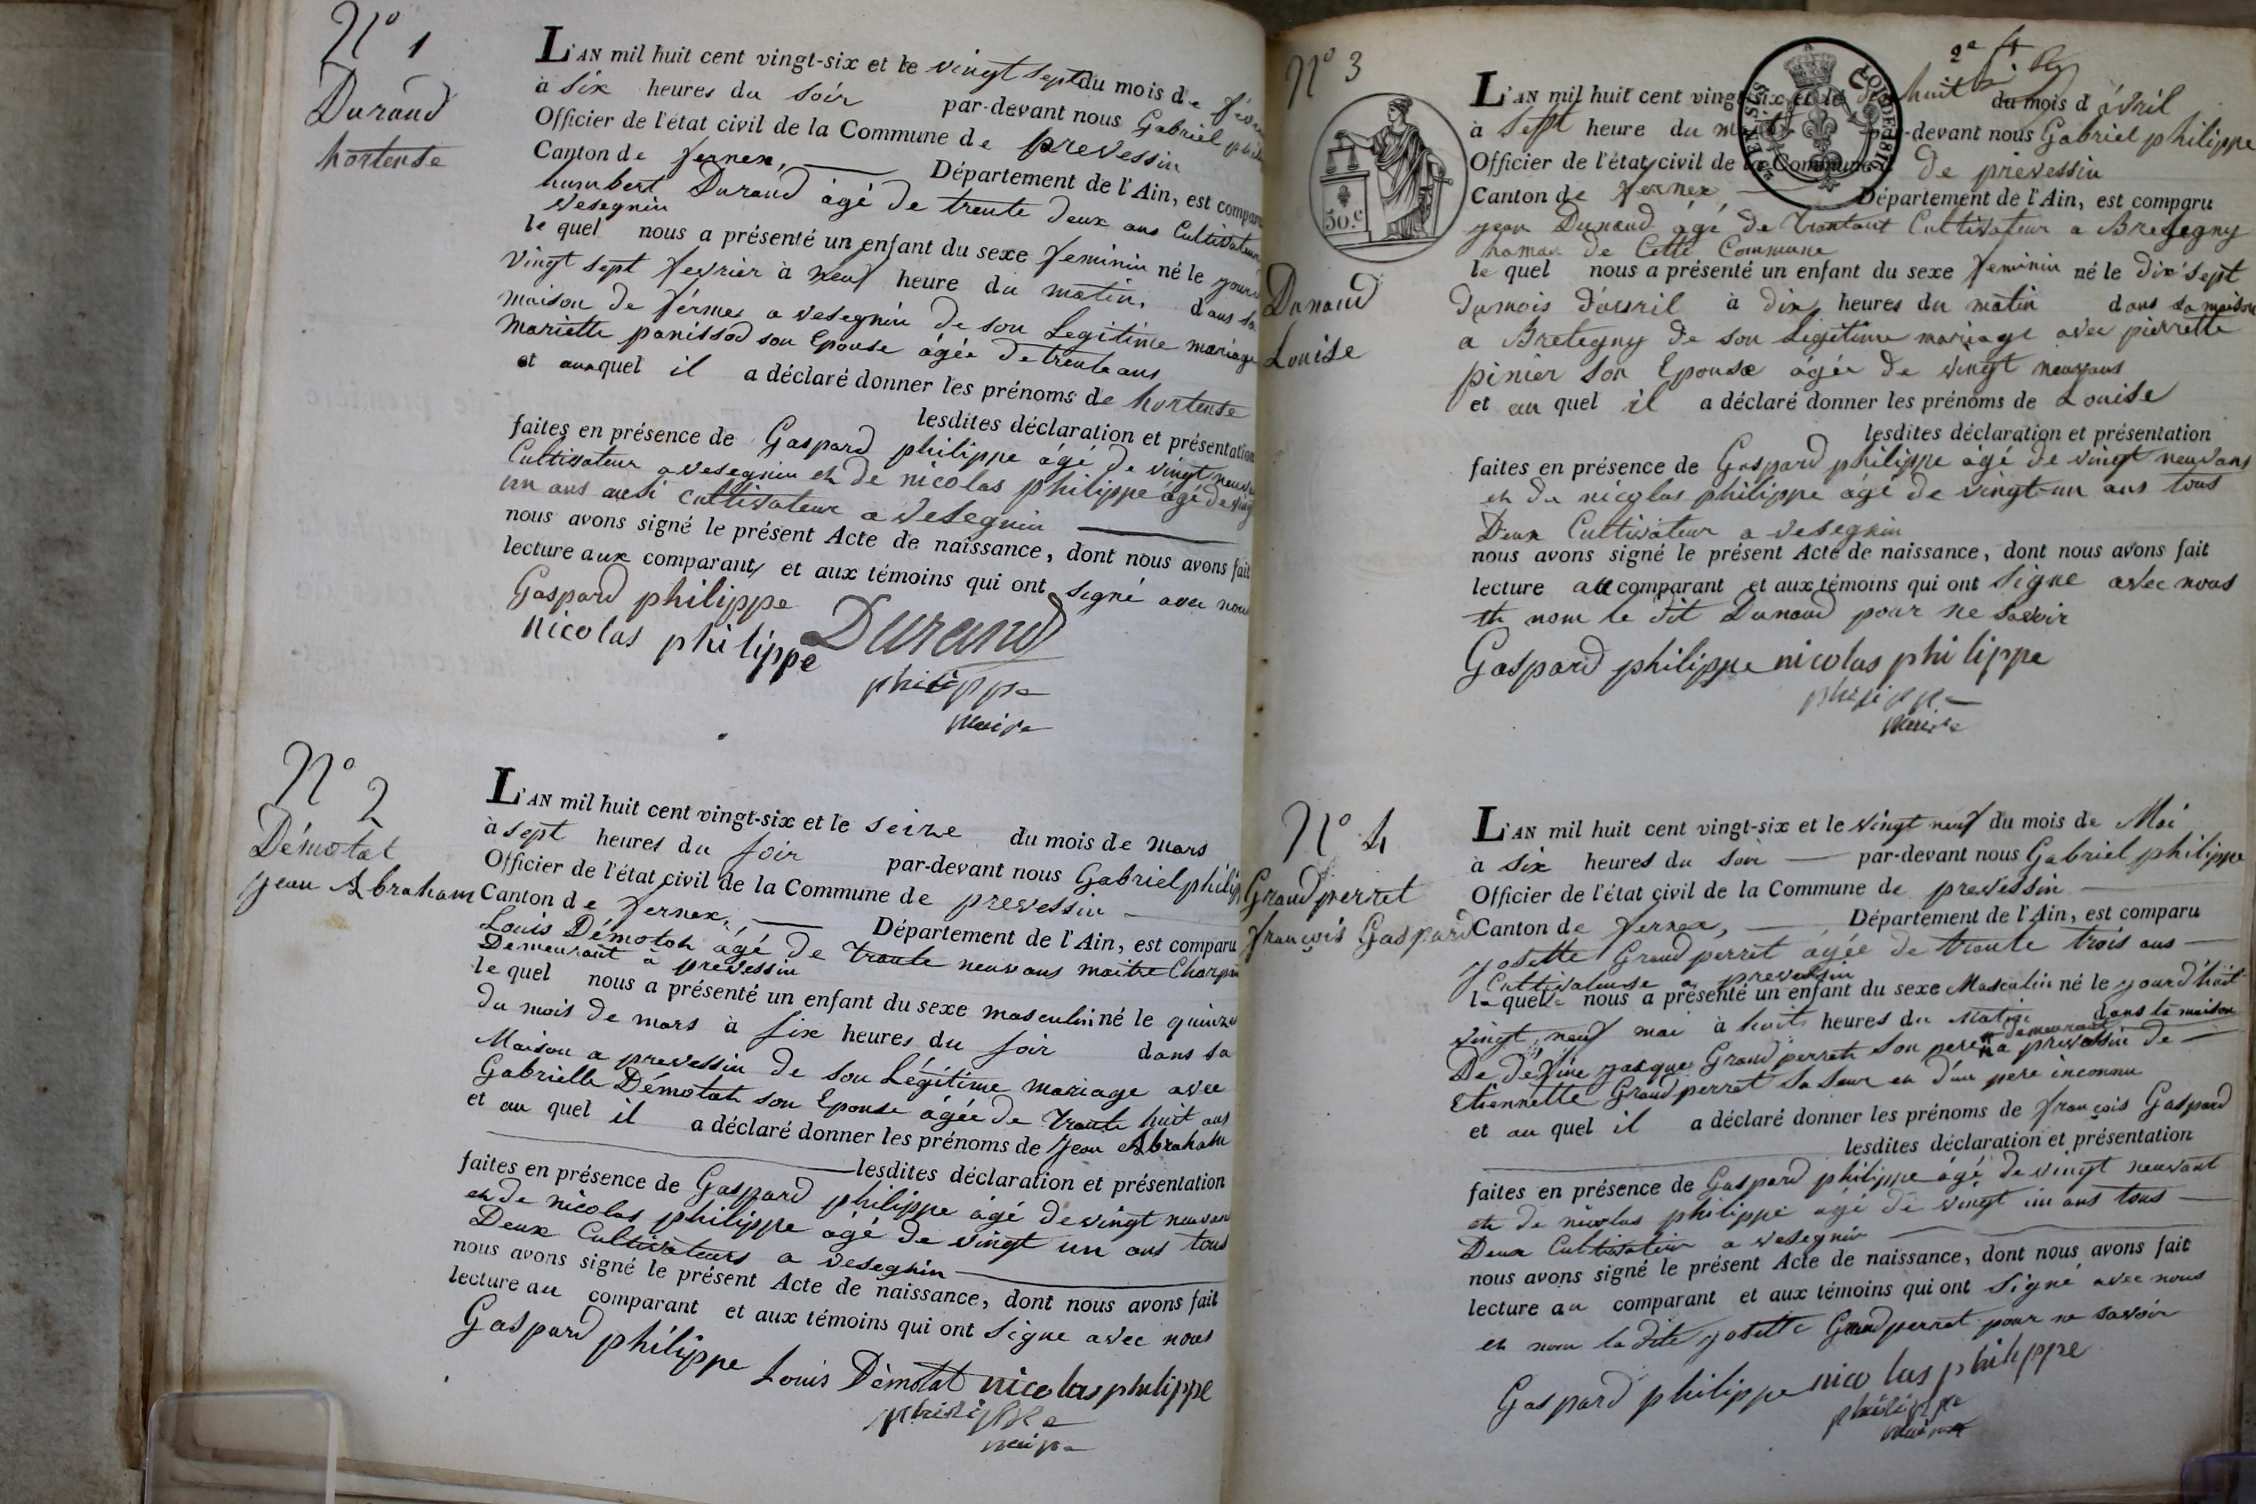 N° 1
Durand
hortense
L'AN mil huit cent vingt-six et le vingt sept du mois de
à six heures du soir par-devant nous Gabriel
Officier de l'état civil de la Commune de prevessin
Canton de fernex, Département de l'Ain, est
humbert Durand âgé de trente deux ans Cultivateur
vesegnin
le quel nous a présenté un enfant du sexe feminin né le
vingt sept fevrier à neuf heure du matin, dans sa
maison de fermes a vesegnin de son Legitime mariage
Mariette panissod son Epouse âgée de trente ans
et auquel il a déclaré donner les prénoms de hortense
lesdites déclaration et présentation
faites en présence de Gaspard philippe âgé de vingt
Cultivateur a vesegnin et de nicolas philippe âgé de
un ans aussi cultivateur a vesegnin
nous avons signé le présent Acte de naissance, dont nous avons fait
lecture aux comparant et aux témoins qui ont signé avec nous
Gaspard philippe
nicolas philippe Durand
philippe
maire
N° 2
Démotat
jean Abraham
L'AN mil huit cent vingt-six et le seize du mois de mars
à sept heures du soir par-devant nous Gabriel
Officier de l'état civil de la Commune de prevessin
Canton de fernex, Département de l'Ain, est comparu
Louis Démotat âgé de trante neuvans maitre
Demeurant a prevessin
le quel nous a présenté un enfant du sexe masculin né le quinze
du mois de mars à six heures du soir dans sa
Maison a prevessin de son Légitime mariage avec
Gabrielle Démotat son Epouse âgée de trante huit ans
et au quel il a déclaré donner les prénoms de jean Abraham
lesdites déclaration et présentation
faites en présence de Gaspard philippe âgé de vingt
et de nicolas philippe âgé de vingt un ans tous
Deux Cultivateurs a vesegnin
nous avons signé le présent Acte de naissance, dont nous avons fait
lecture au comparant et aux témoins qui ont signe avec nous
Gaspard philippe Louis Démotat nicolas philippe
philippe
maire
N° 3
Dunand
Louise
30.c
L'AN mil huit cent vingt-six et le huit du mois d avril
à sept heure du par-devant nous Gabriel philippe
Officier de l'état civil de la Commune de prevessin
Canton de fernex, Département de l'Ain, est comparu
jean Dunand âgé de Cultivateur a Bretegny
hamau de Cette Commune
le quel nous a présenté un enfant du sexe feminin né le dix sept
du mois d'avril à dix heures du matin dans sa maison
a Bretegny de son Legitime mariage avec pierrette
pinier son Epouse âgée de vingt neuvans
et au quel il a déclaré donner les prénoms de Louise
lesdites déclaration et présentation
faites en présence de Gaspard philippe âgé de vingt neuvans
et de nicolas philippe âgé de vingt-un ans tous
Deux Cultivateur a vesegnin
nous avons signé le présent Acte de naissance, dont nous avons fait
lecture au comparant et aux témoins qui ont Signe avec nous
et nom le dit Dunand pour ne savoir
Gaspard philippe nicolas philippe
philippe
maire
N° 4
Grandperret
françois Gaspard
L'AN mil huit cent vingt-six et le vingt neuf du mois de Mai
à six heures du soir par-devant nous Gabriel philippe
Officier de l'état civil de la Commune de prevessin
Canton de fernex, Département de l'Ain, est comparu
josette Grandperret âgée de trante trois ans
Cultivateuse a prevessin
laquelle nous a présenté un enfant du sexe Masculin né le jourd'huit
vingt neuf mai à huit heures du Matin dans la maison
De jaque Grandperret son pere demeurant a prevessin de
Etiennette Grandperret sa seur et d'un pere inconnu
et au quel il a déclaré donner les prénoms de françois Gaspard
lesdites déclaration et présentation
faites en présence de Gaspard philippe âgé de vingt neuvant
et de nicolas philippe âgé de vingt un ans tous
Deux Cultivateur a vesegnin
nous avons signé le présent Acte de naissance, dont nous avons fait
lecture au comparant et aux témoins qui ont Signé avec nous
et nom la dite josette Grandperret pour ne savoir
Gaspard philippe nicolas philippe
philippe
maire